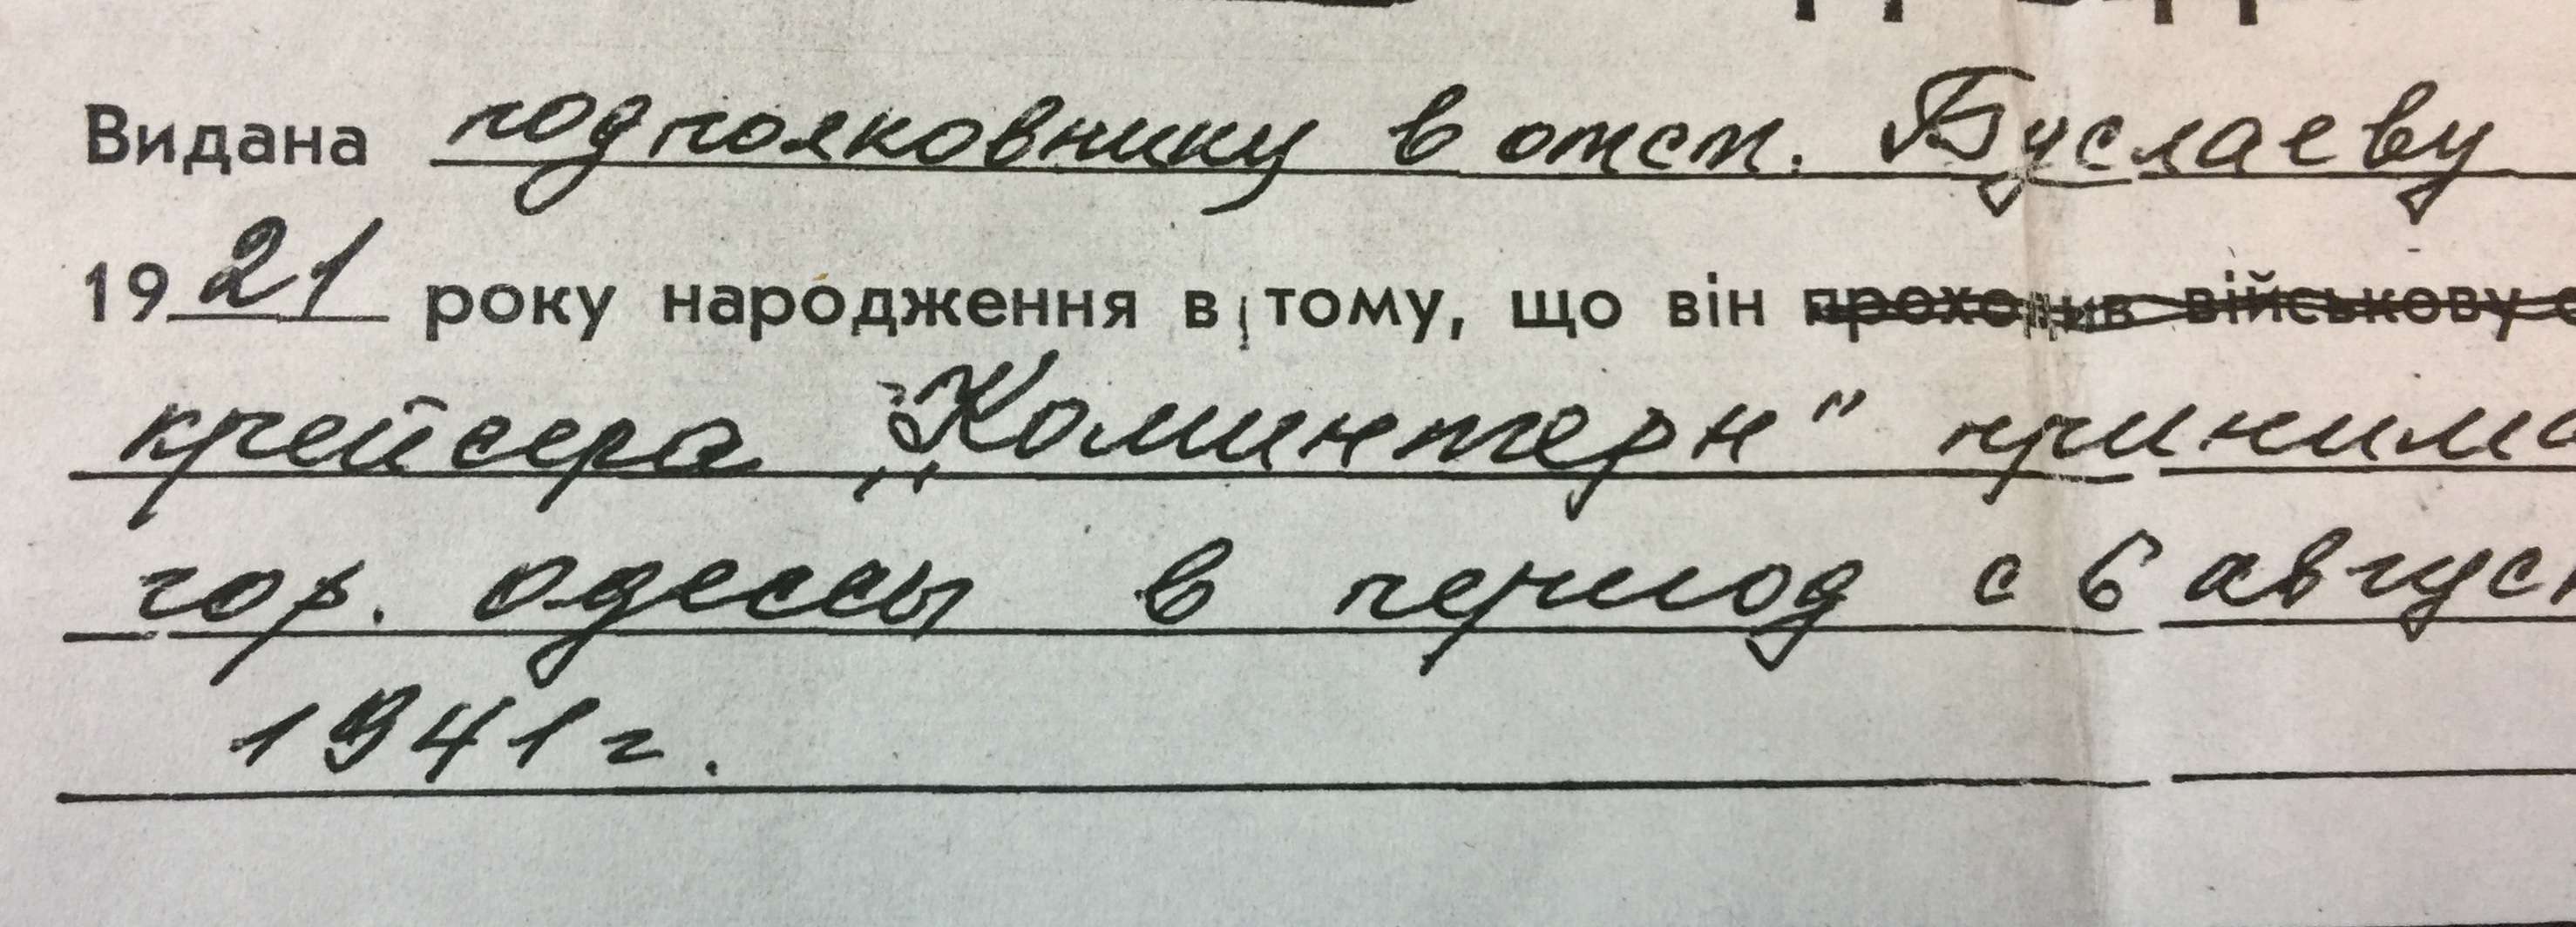 Видана подполковнику в отст. Буслаеву
1921 року народження в тому, що він проходив військову с
крейсера „Коминтерн" принима
гор. Одессы в период с 6 август
1941г.